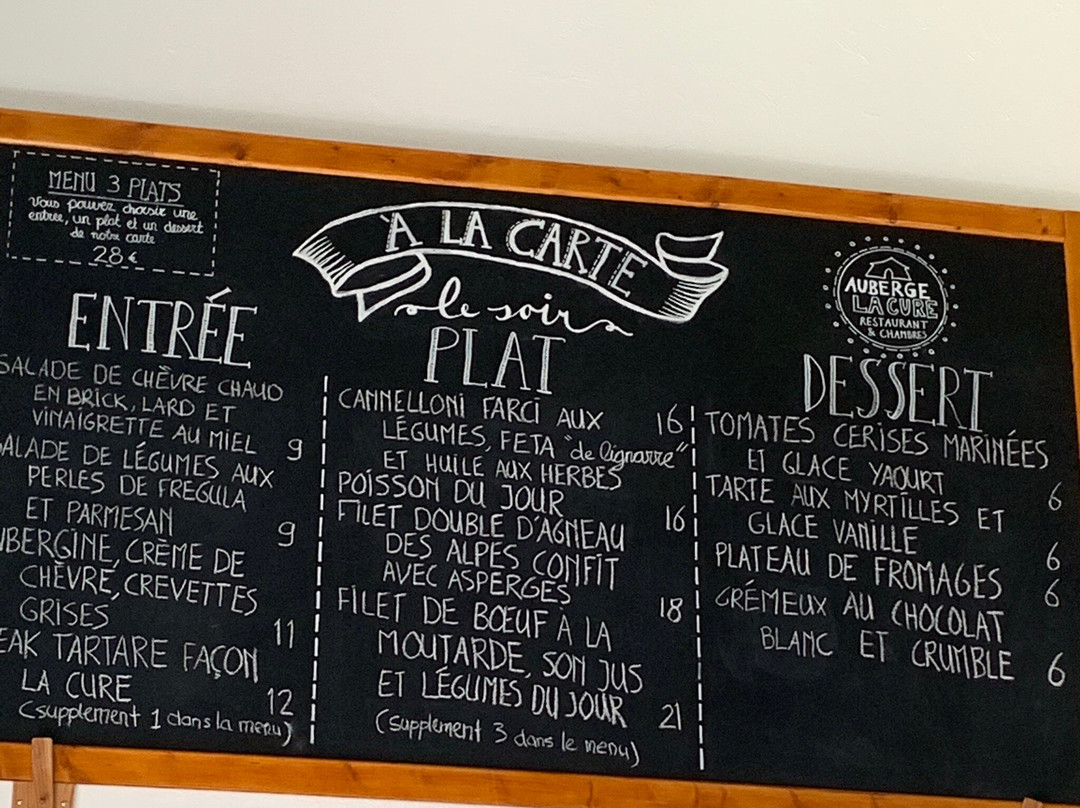 MENU 3 PLATS
Vous pouvez choisir une
entrée, un plat et un dessert
de notre carte
28 €
À LA CARTE
le soir
AUBERGE
LA CURE
RESTAURANT
& CHAMBRES
ENTRÉE
SALADE DE CHÈVRE CHAUD
EN BRICK, LARD ET
VINAIGRETTE AU MIEL 9
SALADE DE LÉGUMES AUX
PERLES DE FREGULA
ET PARMESAN 9
UBERGINE, CRÈME DE
CHÈVRE, CREVETTES
GRISES 11
EAK TARTARE FAÇON
LA CURE 12
(supplement 1 dans la menu)
PLAT
CANNELLONI FARCI AUX 16
LÉGUMES, FETA "de lignarre"
ET HUILE AUX HERBES
POISSON DU JOUR 16
FILET DOUBLE D'AGNEAU
DES ALPES CONFIT
AVEC ASPERGES 18
FILET DE BŒUF À LA
MOUTARDE, SON JUS
ET LÉGUMES DU JOUR 21
(supplement 3 dans le menu)
DESSERT
TOMATES CERISES MARINÉES
ET GLACE YAOURT 6
TARTE AUX MYRTILLES ET
GLACE VANILLE 6
PLATEAU DE FROMAGES 6
CRÉMEUX AU CHOCOLAT
BLANC ET CRUMBLE 6